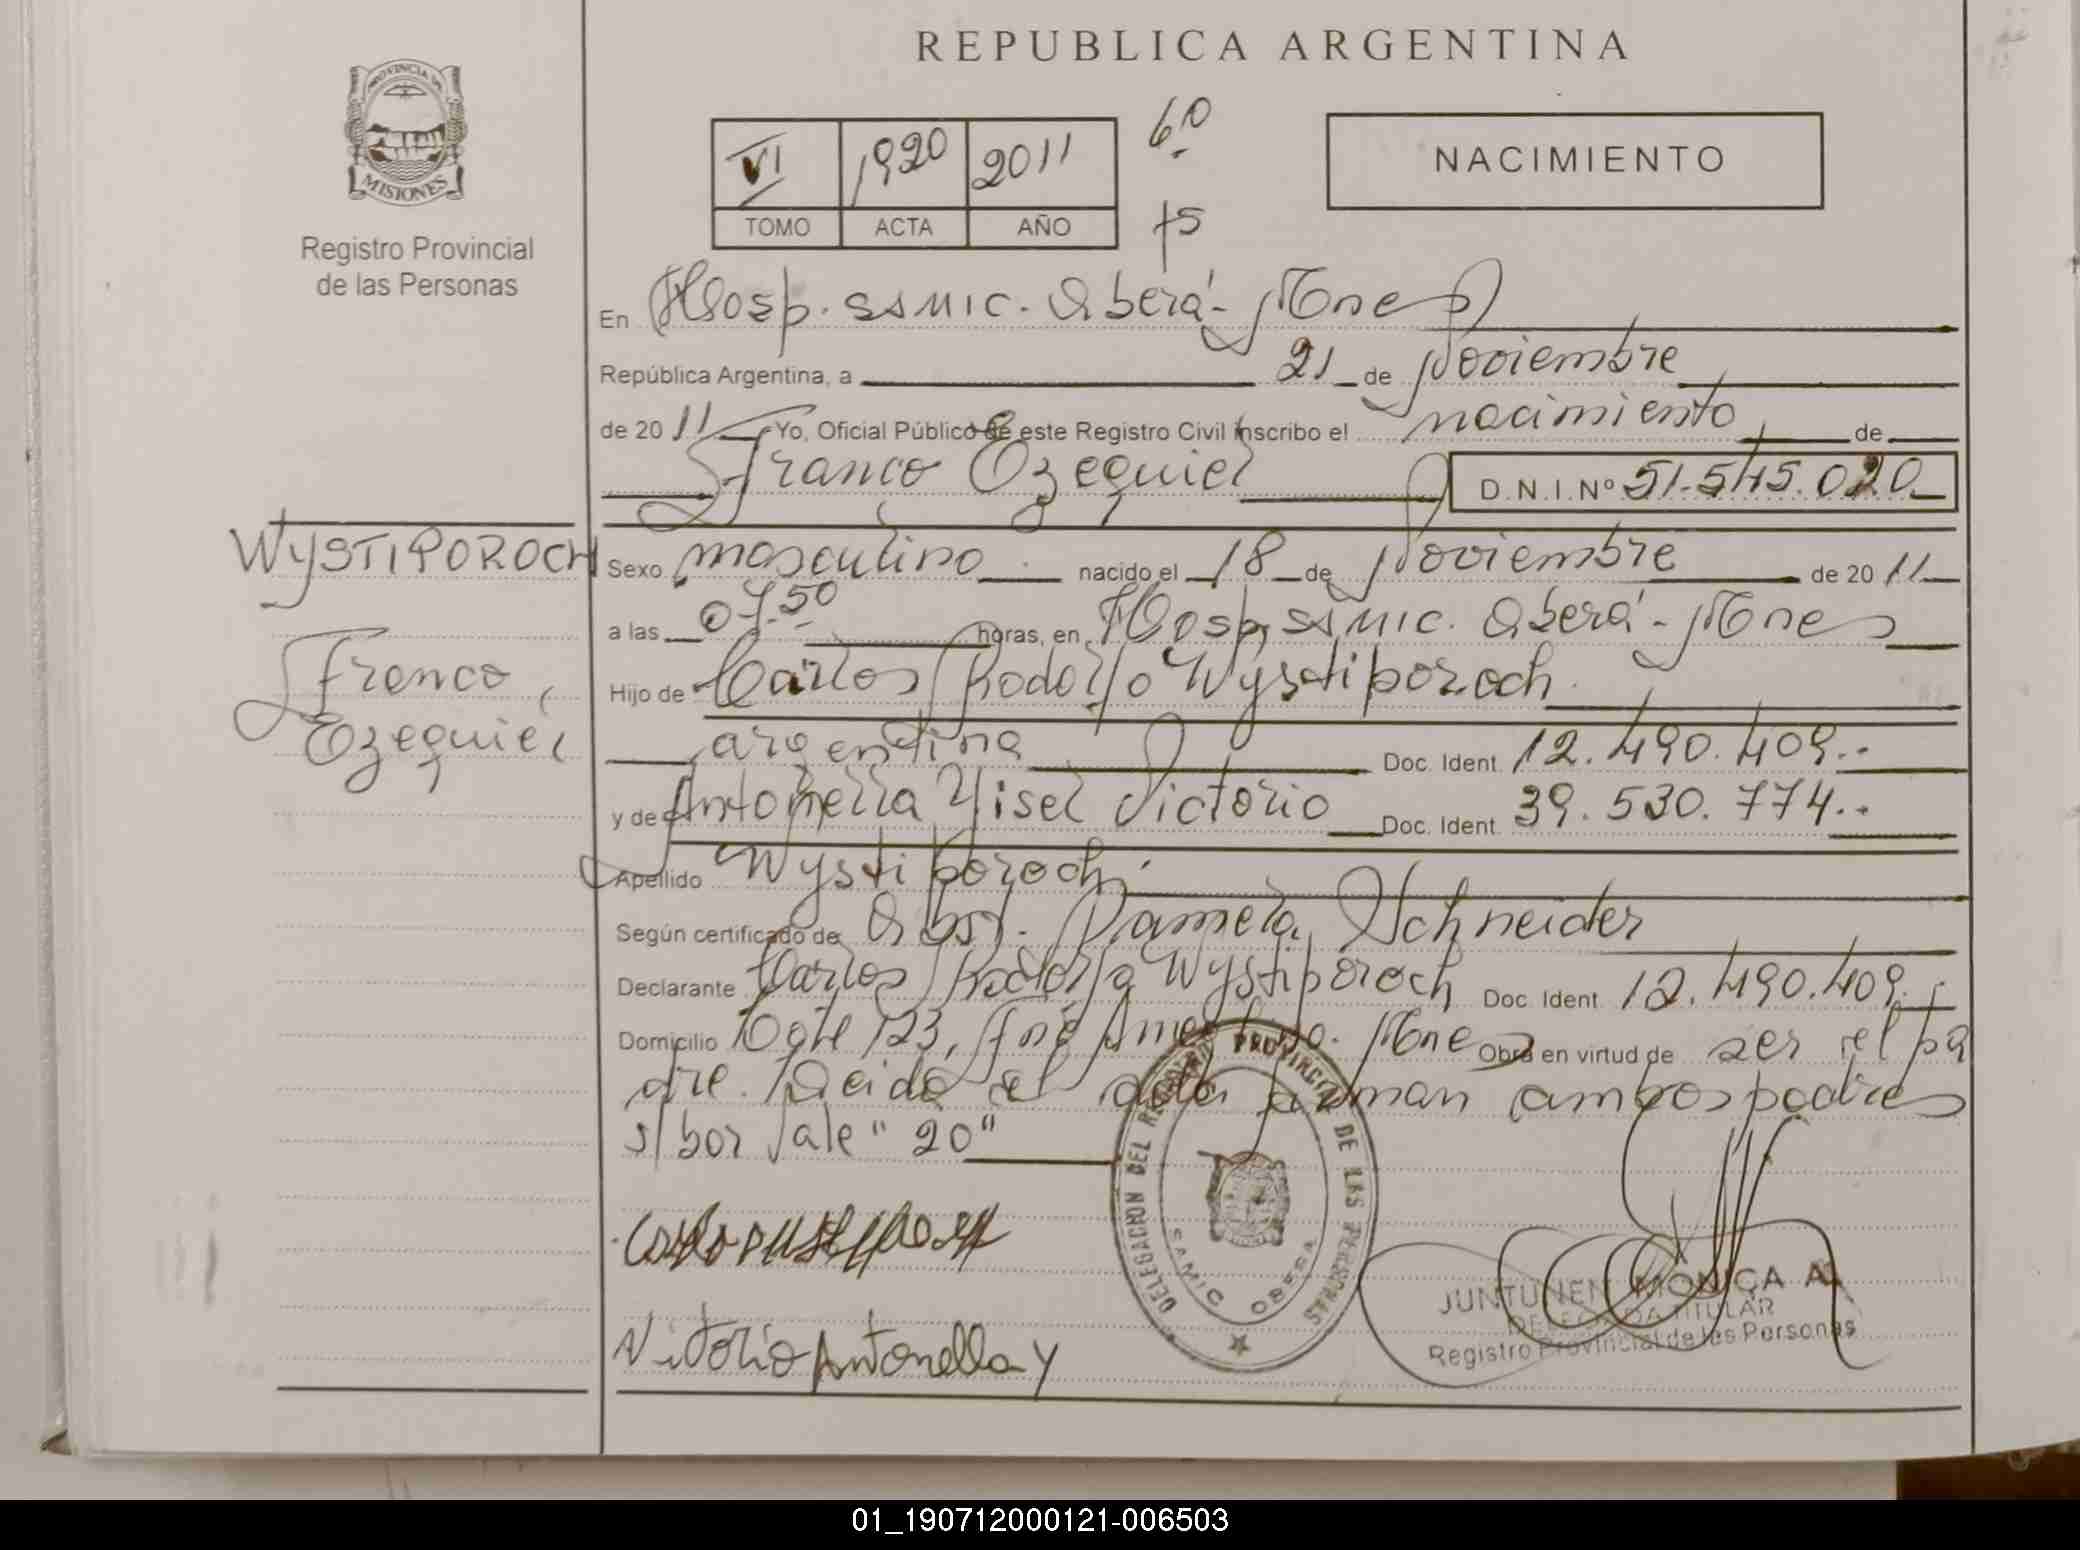 REPUBLICA ARGENTINA
PROVINCIA DE
MISIONES
Registro Provincial
de las Personas
VI 1920 2011
TOMO ACTA AÑO
60
75
NACIMIENTO
En Hosp. SSMIC. Oberá - Mnes
República Argentina, a 21 de Noviembre
de 2011 Yo, Oficial Público de este Registro Civil inscribo el nacimiento de
Franco Ezequiel D.N.I. Nº 51.545.020
WYSTIPOROCH
Franco
Ezequiel
Sexo masculino nacido el 18 de Noviembre de 2011
a las 07.50 horas, en Hosp. SSMIC. Oberá - Mnes
Hijo de Carlos Rodolfo Wystiporoch
argentina Doc. Ident. 12.490.409..
y de Antonella Yisel Victorio Doc. Ident. 39.530.774..
Apellido Wystiporoch
Según certificado de Obst. Pamela Schneider
Declarante Carlos Rodolfo Wystiporoch Doc. Ident. 12.490.409.
Domicilio 123, Mnes Obra en virtud de ser el pa
dre. Leida el acta firman ambos padres
s/bor Vale "20"
DELEGACION DEL REGISTRO PROVINCIAL DE LAS PERSONAS
SAMIC OBERA
Vitorio Antonella Y
JUNTUNEN MONICA A.
DELEGADA TITULAR
Registro Provincial de las Personas
01_190712000121-006503